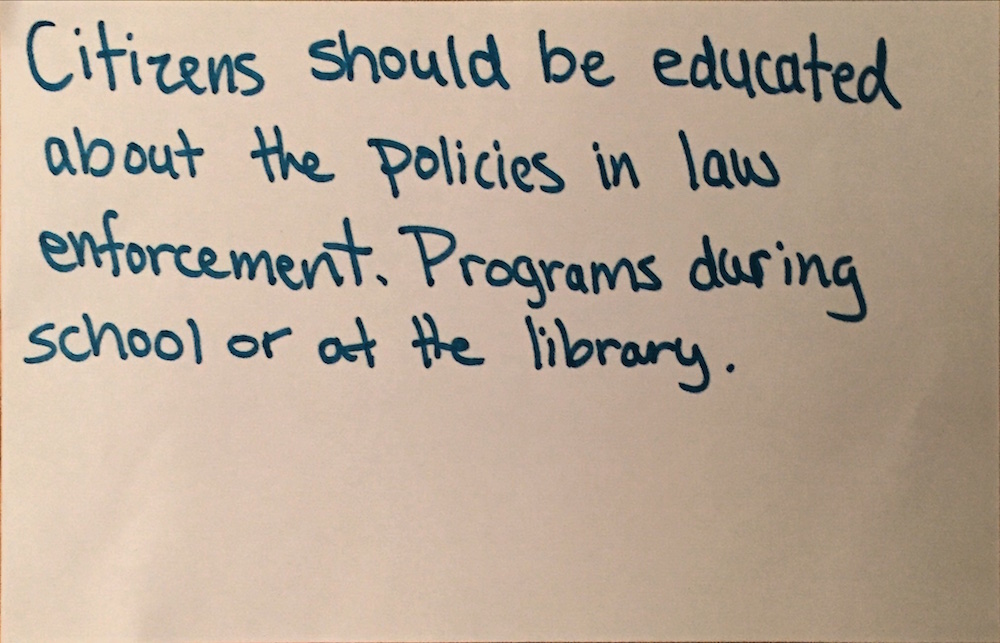 Citizens should be educated
about the policies in law
enforcement. Programs during
school or at the library.